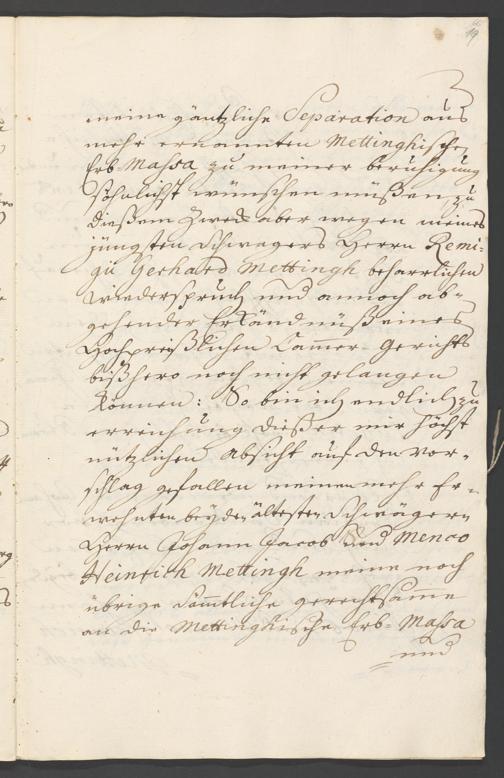 19
meine gäntzliche Separation aus
mehr ernannten Mettinghischen
Erb-Massa zu meiner beruhigung
söhnlichst wünschen müßen zu
dießem Zweck aber wegen meines
jüngsten Schwagers Herrn Remi-
gii Gerhard Mettingh beharrlichen
wiederspruch und annoch ab-
gehender Erkändnüß eines
Hochpreißlichen Cammer-Gerichts
bißhero noch nicht gelangen
können: So bin ich endlich zu
erreichung dießer mir höchst
nützlichen Absicht auf den vor-
schlag gefallen meinen mehr Er-
wehnten beyden ältesten Schwägern
Herrn Johann Jacob und Menco
Heinrich Mettingh meine noch
übrige Sämtliche gerechtsame
an die Mettinghische Erb-Massa
und